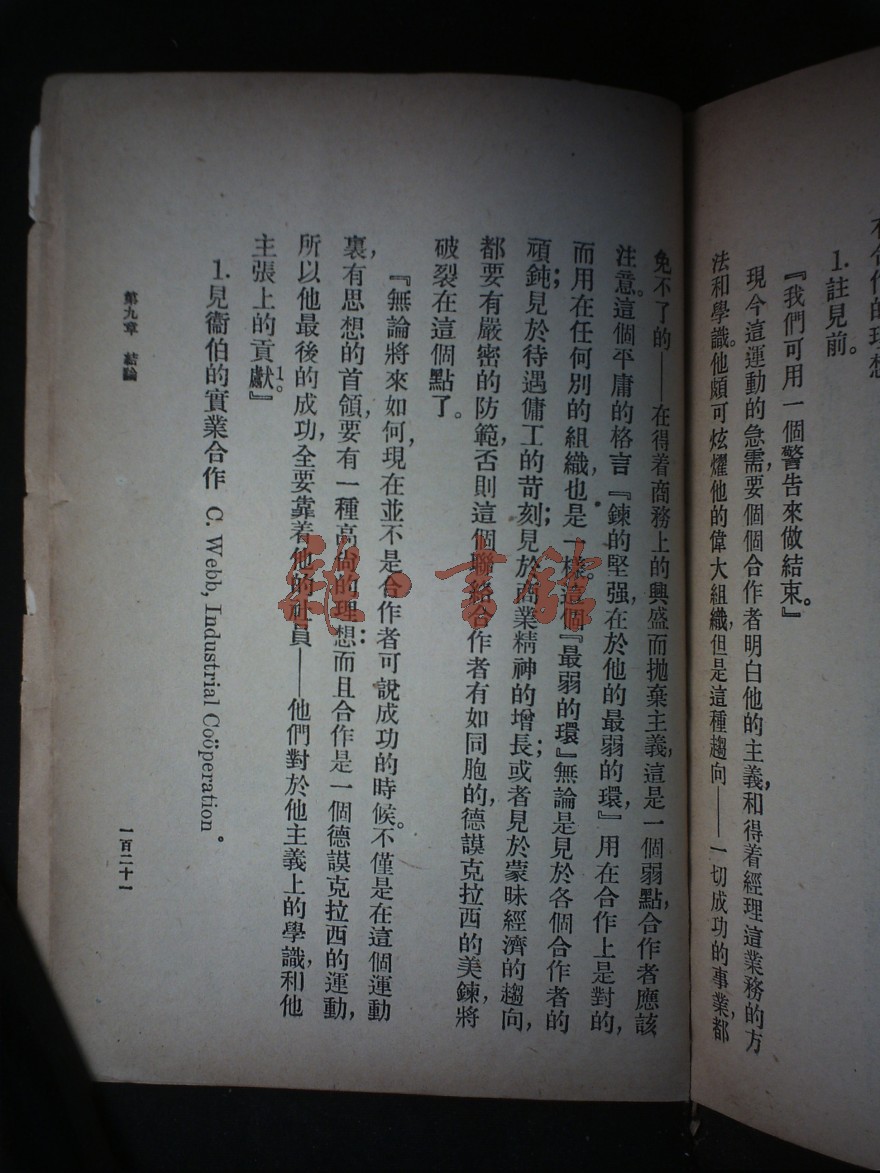 有合作的理想
1. 註見前。
『我們可用一個警告來做結束。』
現今這運動的急需，要個個合作者明白他的主義，和得着經理這業務的方
法和學識。他頗可炫燿他的偉大組織，但是這種趨向——一切成功的事業，都
免不了的——在得着商務上的興盛而拋棄主義，這是一個弱點，合作者應該
注意。這個平庸的格言『鍊的堅强，在於他的最弱的環，』用在合作上是對的，
而用在任何別的組織，也是一樣。這個『最弱的環』無論是見於各個合作者的
頑鈍；見於待遇傭工的苛刻；見於商業精神的增長；或者見於蒙昧經濟的趨向，
都要有嚴密的防範，否則這個聯絡合作者有如同胞的德謨克拉西的美鍊，將
破裂在這個點了。
『無論將來如何，現在並不是合作者可說成功的時候。不僅是在這個運動
裏，有思想的首領，要有一種高尚的理想：而且合作是一個德謨克拉西的運動，
所以他最後的成功，全要靠着他的社員——他們對於他主義上的學識，和他
主張上的貢獻』1。
1. 見衞伯的實業合作 C. Webb, Industrial Coöperation。
第九章 結論
一百二十一
雜·書館